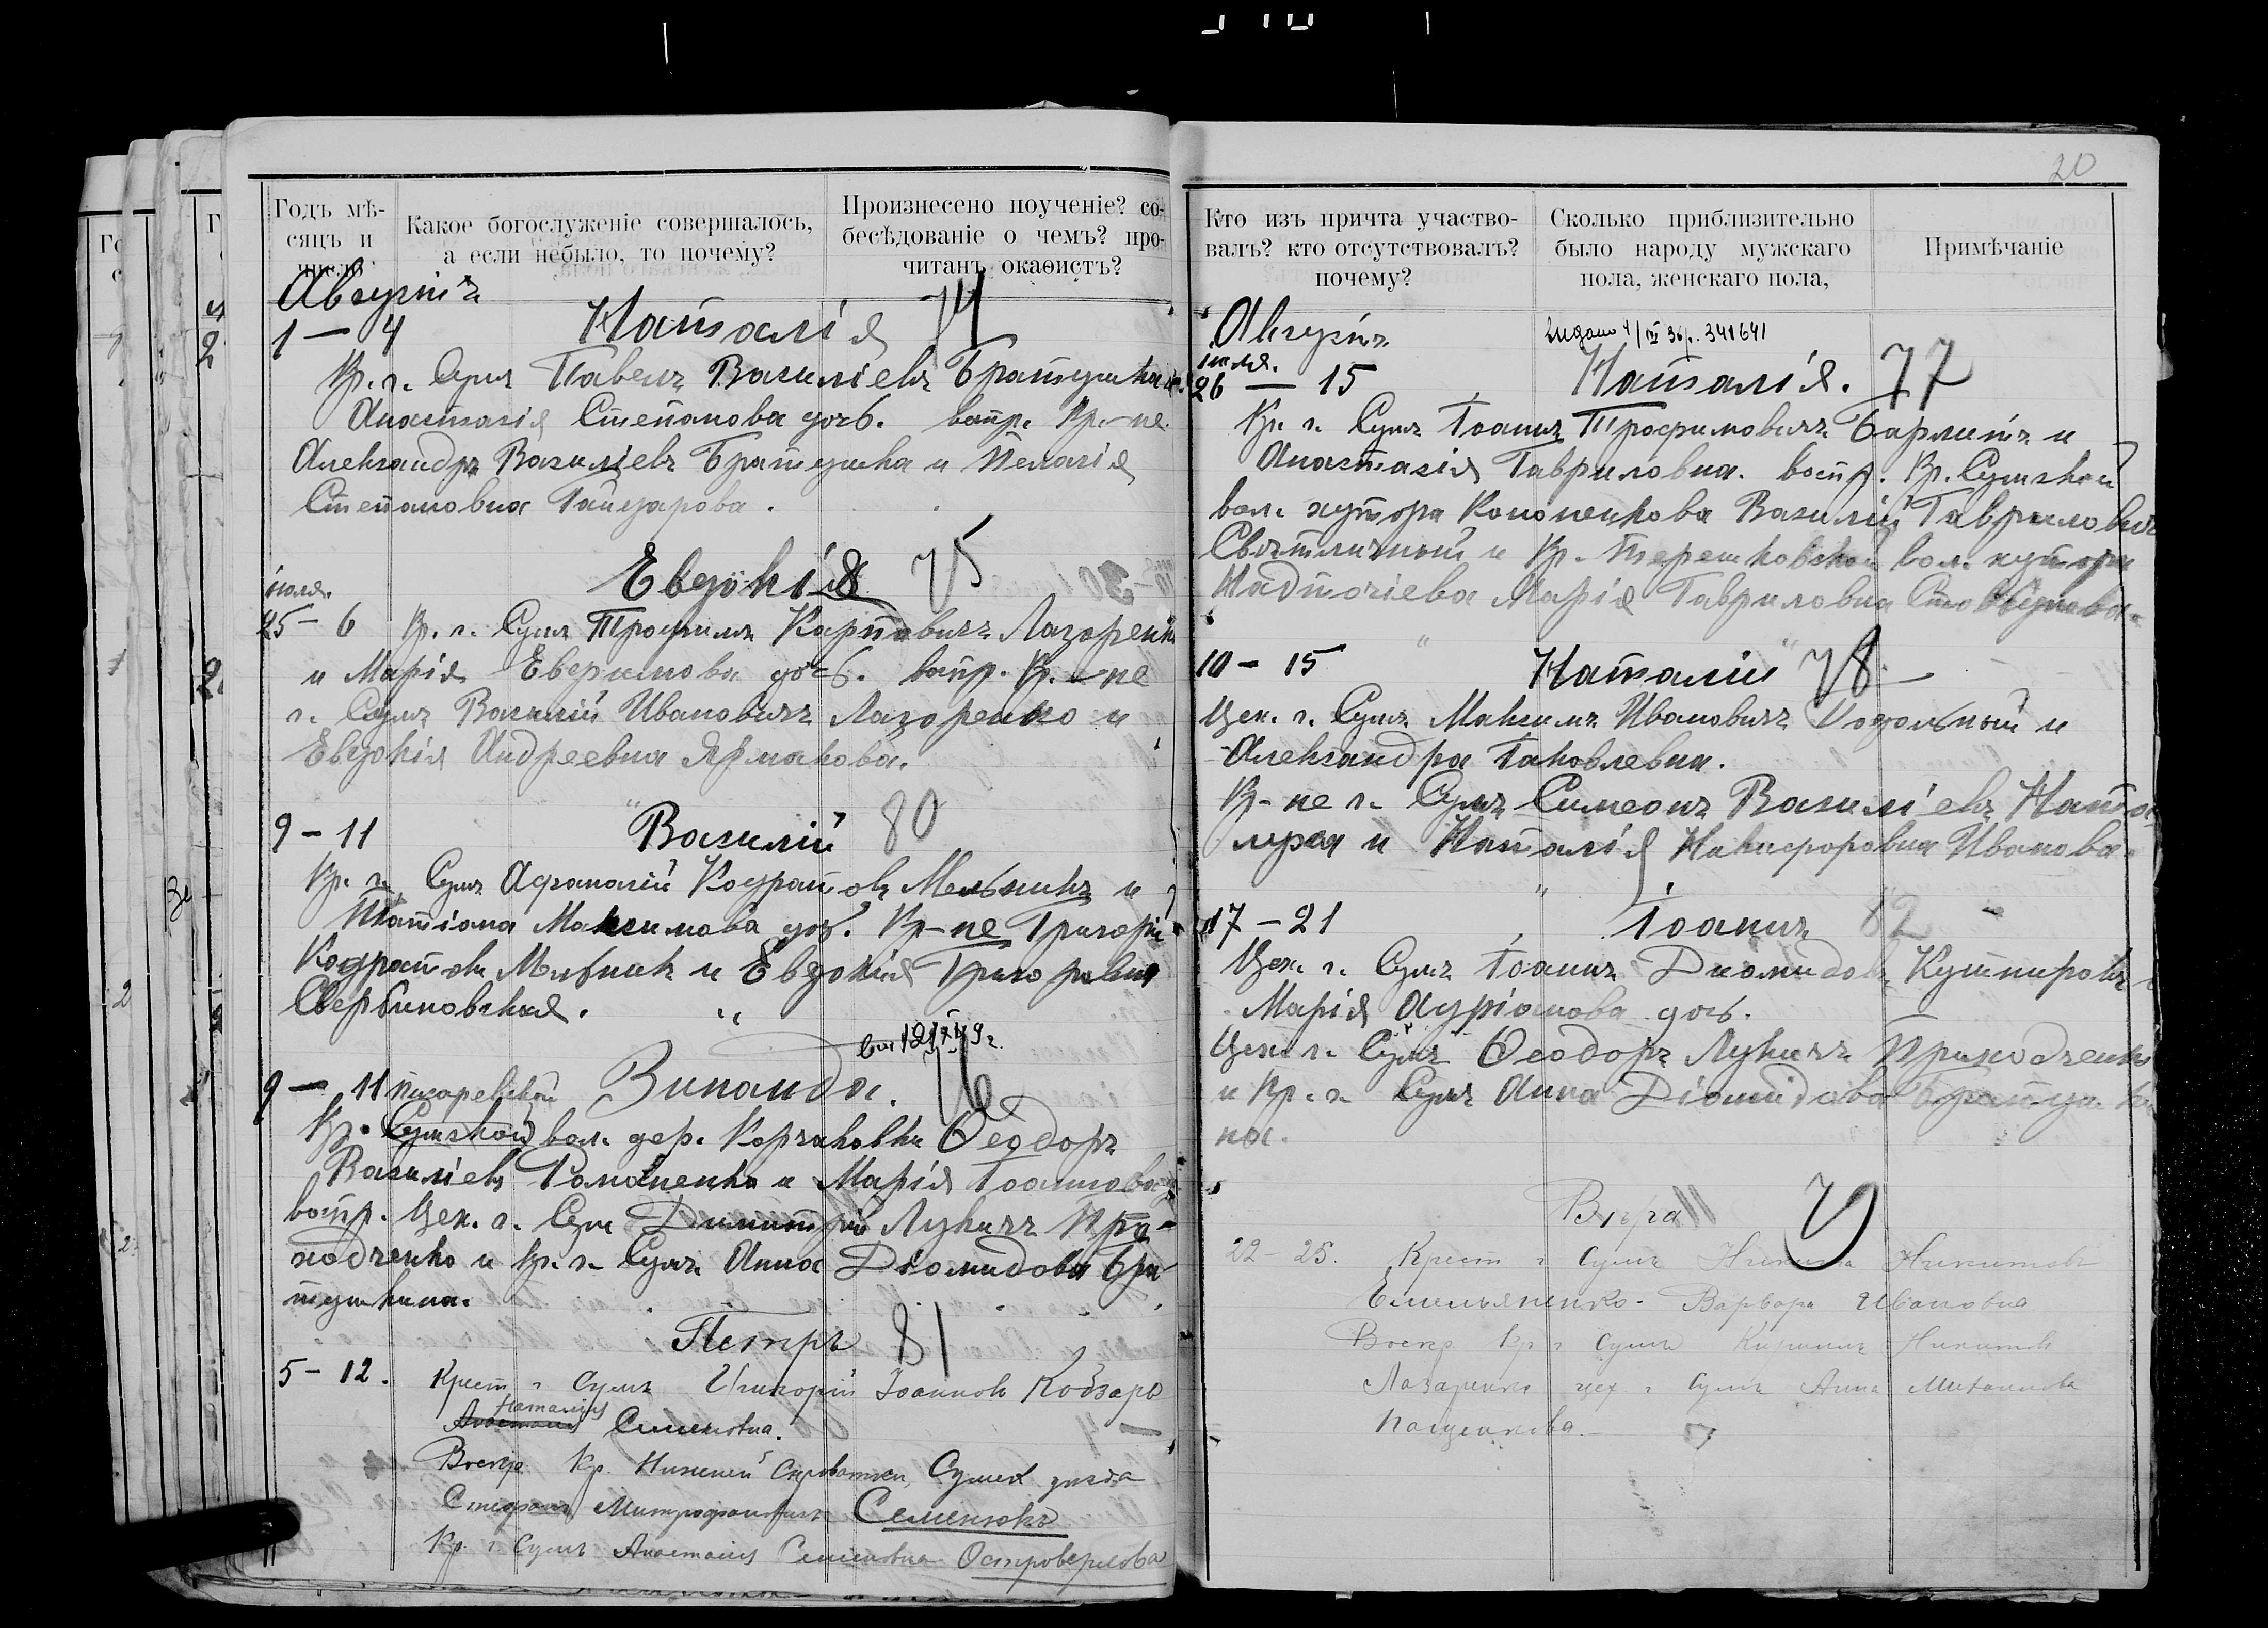 20
Годъ мѣ-
сяцъ и
число
Какое богослуженіе совершалось,
а если небыло, то почему?
Произнесено поученіе? со-
бесѣдованіе о чемъ? про-
читанъ окаѳистъ?
Августъ
1 — 4 Наталія 74
Кр. г. Сумъ Павелъ Василіевъ Братушка и
Анастасія Степанова дочь. воспр. Кр-не
Александръ Василіевъ Братушка и Пелагія
Степановна
Евдокія 75
іюля.
25 - 6 Кр. г. Сумъ Трофимъ Карповичъ Лазоренко
и Марія дочь. воспр. Кр-не
г. Сумъ Василій Ивановичъ Лазоренко и
Евдокія Андреевна Ярмакова.
9 - 11 Василій 80
Кр. г. Сумъ Афанасій Кодратовъ Мельникъ и
Татіана Максимова доч. Кр-не Григорій
Кодратовъ Мельникъ и Евдокія
Свербиновская.
9 — 11 Зинаида. 76
Кр. Сумской вол. дер. Ѳеодоръ
Василіевъ и Марія Іоаннова
воспр. Цех. г. Сумъ Димитрій Лукичъ При-
ходченко и Кр. г. Сумъ Анна Діомидова Бра-
тушкина.
Петръ 81
5 - 12. Крест г Сумъ Григорій Іоанновъ Кобзарь
Наталія
Семеновна.
Воспр Кр. Нижней Сыроватки, Сумск уезда
Стефанъ Митрофановичъ Семенюкъ
Кр. г Сумъ Анастасія Семеновна Островерхова
Кто изъ причта участво-
валъ? кто отсутствовалъ?
почему?
Сколько приблизительно
было народу мужскаго
пола, женскаго пола,
Примѣчаніе
Августъ
341641
іюля.
26 — 15 Наталія. 77
Кр. г. Сумъ Іоаннъ Трофимовичъ и
Анастасія Гавриловна. воспр. Кр. Сумской
вол. хутора Кононенкова Василій Гавриловичъ
Свѣтличный и Кр. Терешковской вол. хутора
Надточіева Марія Гавриловна
10 - 15 Наталія 78
Цех. г. Сумъ Максимъ Ивановичъ и
Александра Іаковлевна.
Кр-не г. Сумъ Симеонъ Василіевъ
и Наталія Никифоровна Иванова.
17 - 21 Іоаннъ 82
Цех. г. Сумъ Іоаннъ Діомидовъ Кушнировъ и
Марія дочь.
Цех. г. Сумъ Ѳеодоръ Лукичъ Приходченко
и Кр. г. Сумъ Анна Діомидова Братушки
на.
Вѣра 79
22 - 25. Крест г Сумъ Никита Никитовъ
Емельяненко. Варвара Ивановна
Воспр Кр г Сумъ Никитовъ
Лазаренко цех г Сумъ Анна Михаилова
Пащенкова.